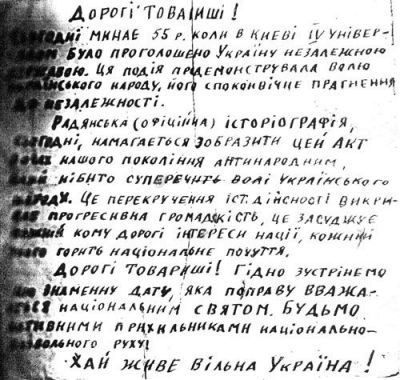 Дорогі товариші!
Сьогодні минає 55 р. коли в Києві IV Універ-
салом було проголошено Україну незалежною
державою. Ця подія продемонструвала волю
українського народу, його споконвічне прагнення
до незалежності.
Радянська (офіційна) історіографія,
сьогодні, намагається зобразити цей акт
очах нашого покоління антинародним,
нібито суперечить волі українського
народу. Це перекручення іст. дійсності викри-
ває прогресивна громадкість, це засуджує
кожний кому дорогі інтереси нації, кожний
кого горить національне почуття.
Дорогі товариші! Гідно зустрінемо
цю знаменну дату, яка поправу вважа-
ється національним святом. Будьмо
активними прихильниками національно-
визвольного руху!
Хай живе вільна Україна!